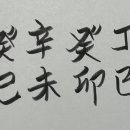 癸辛癸丁
巳未卯巳